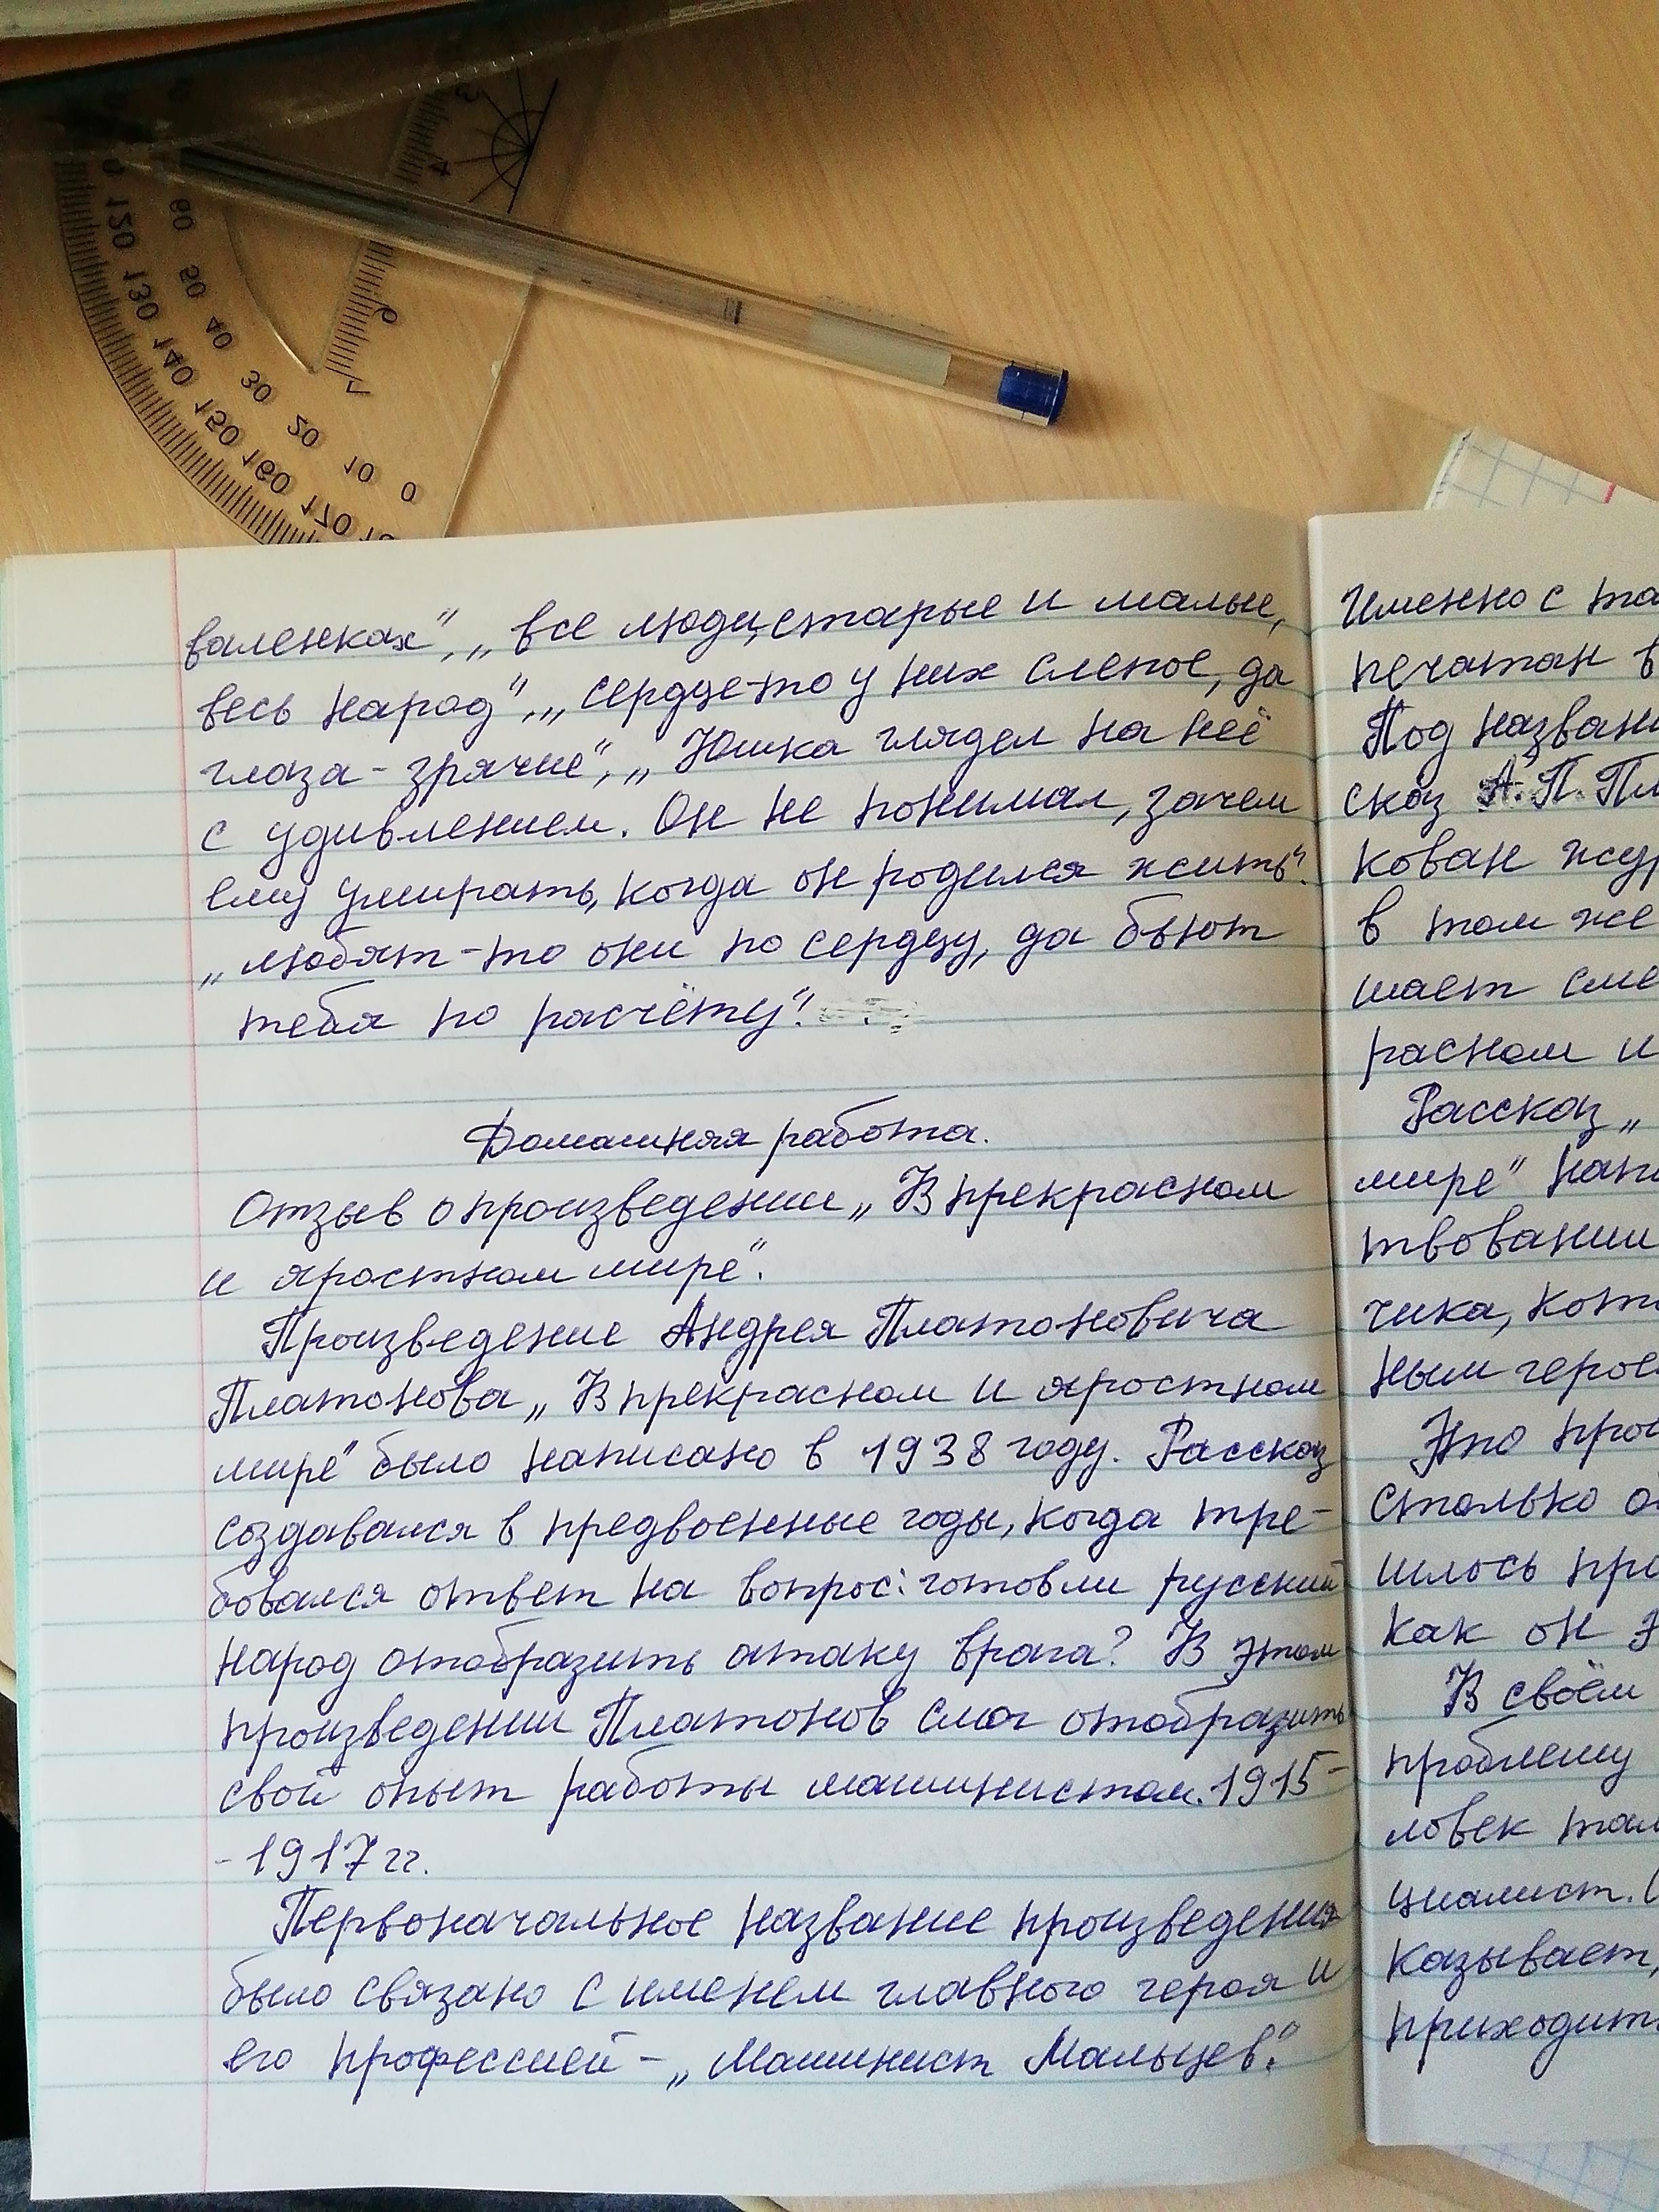 валенках", „все люди, старые и малые,
весь народ", „сердце-то у них слепое, да
глаза - зрячие", „Юшка глядел на неё
с удивлением. Он не понимал, зачем
ему умирать, когда он родился жить".
„любят-то они по сердцу, да бьют
тебя по расчёту".
Домашняя работа.
Отзыв о произведении „В прекрасном
и яростном мире".
Произведение Андрея Платоновича
Платонова „В прекрасном и яростном
мире" было написано в 1938 году. Рассказ
создавался в предвоенные годы, когда тре-
бовался ответ на вопрос: готов ли русский
народ отобразить атаку врага? В этом
произведении Платонов смог отобразить
свой опыт работы машинистом. 1915-
-1917 гг.
Первоначальное название произведения
было связано с именем главного героя и
его профессией - „Машинист Мальцев".
Именно с та
печатан в
Под назван
сказ А.П. Пл
кован жур
в том же
шает сме
расном и
Рассказ „
мире" нап
твовании
чика, кот
ным геро
Это про
столько о
шлось пр
как он э
В своём
проблему
ловек тал
циалист. (
казывает,
приходит
120 130 140 150 160 170
60 50 40 30 20 10 0
3 4 6 7